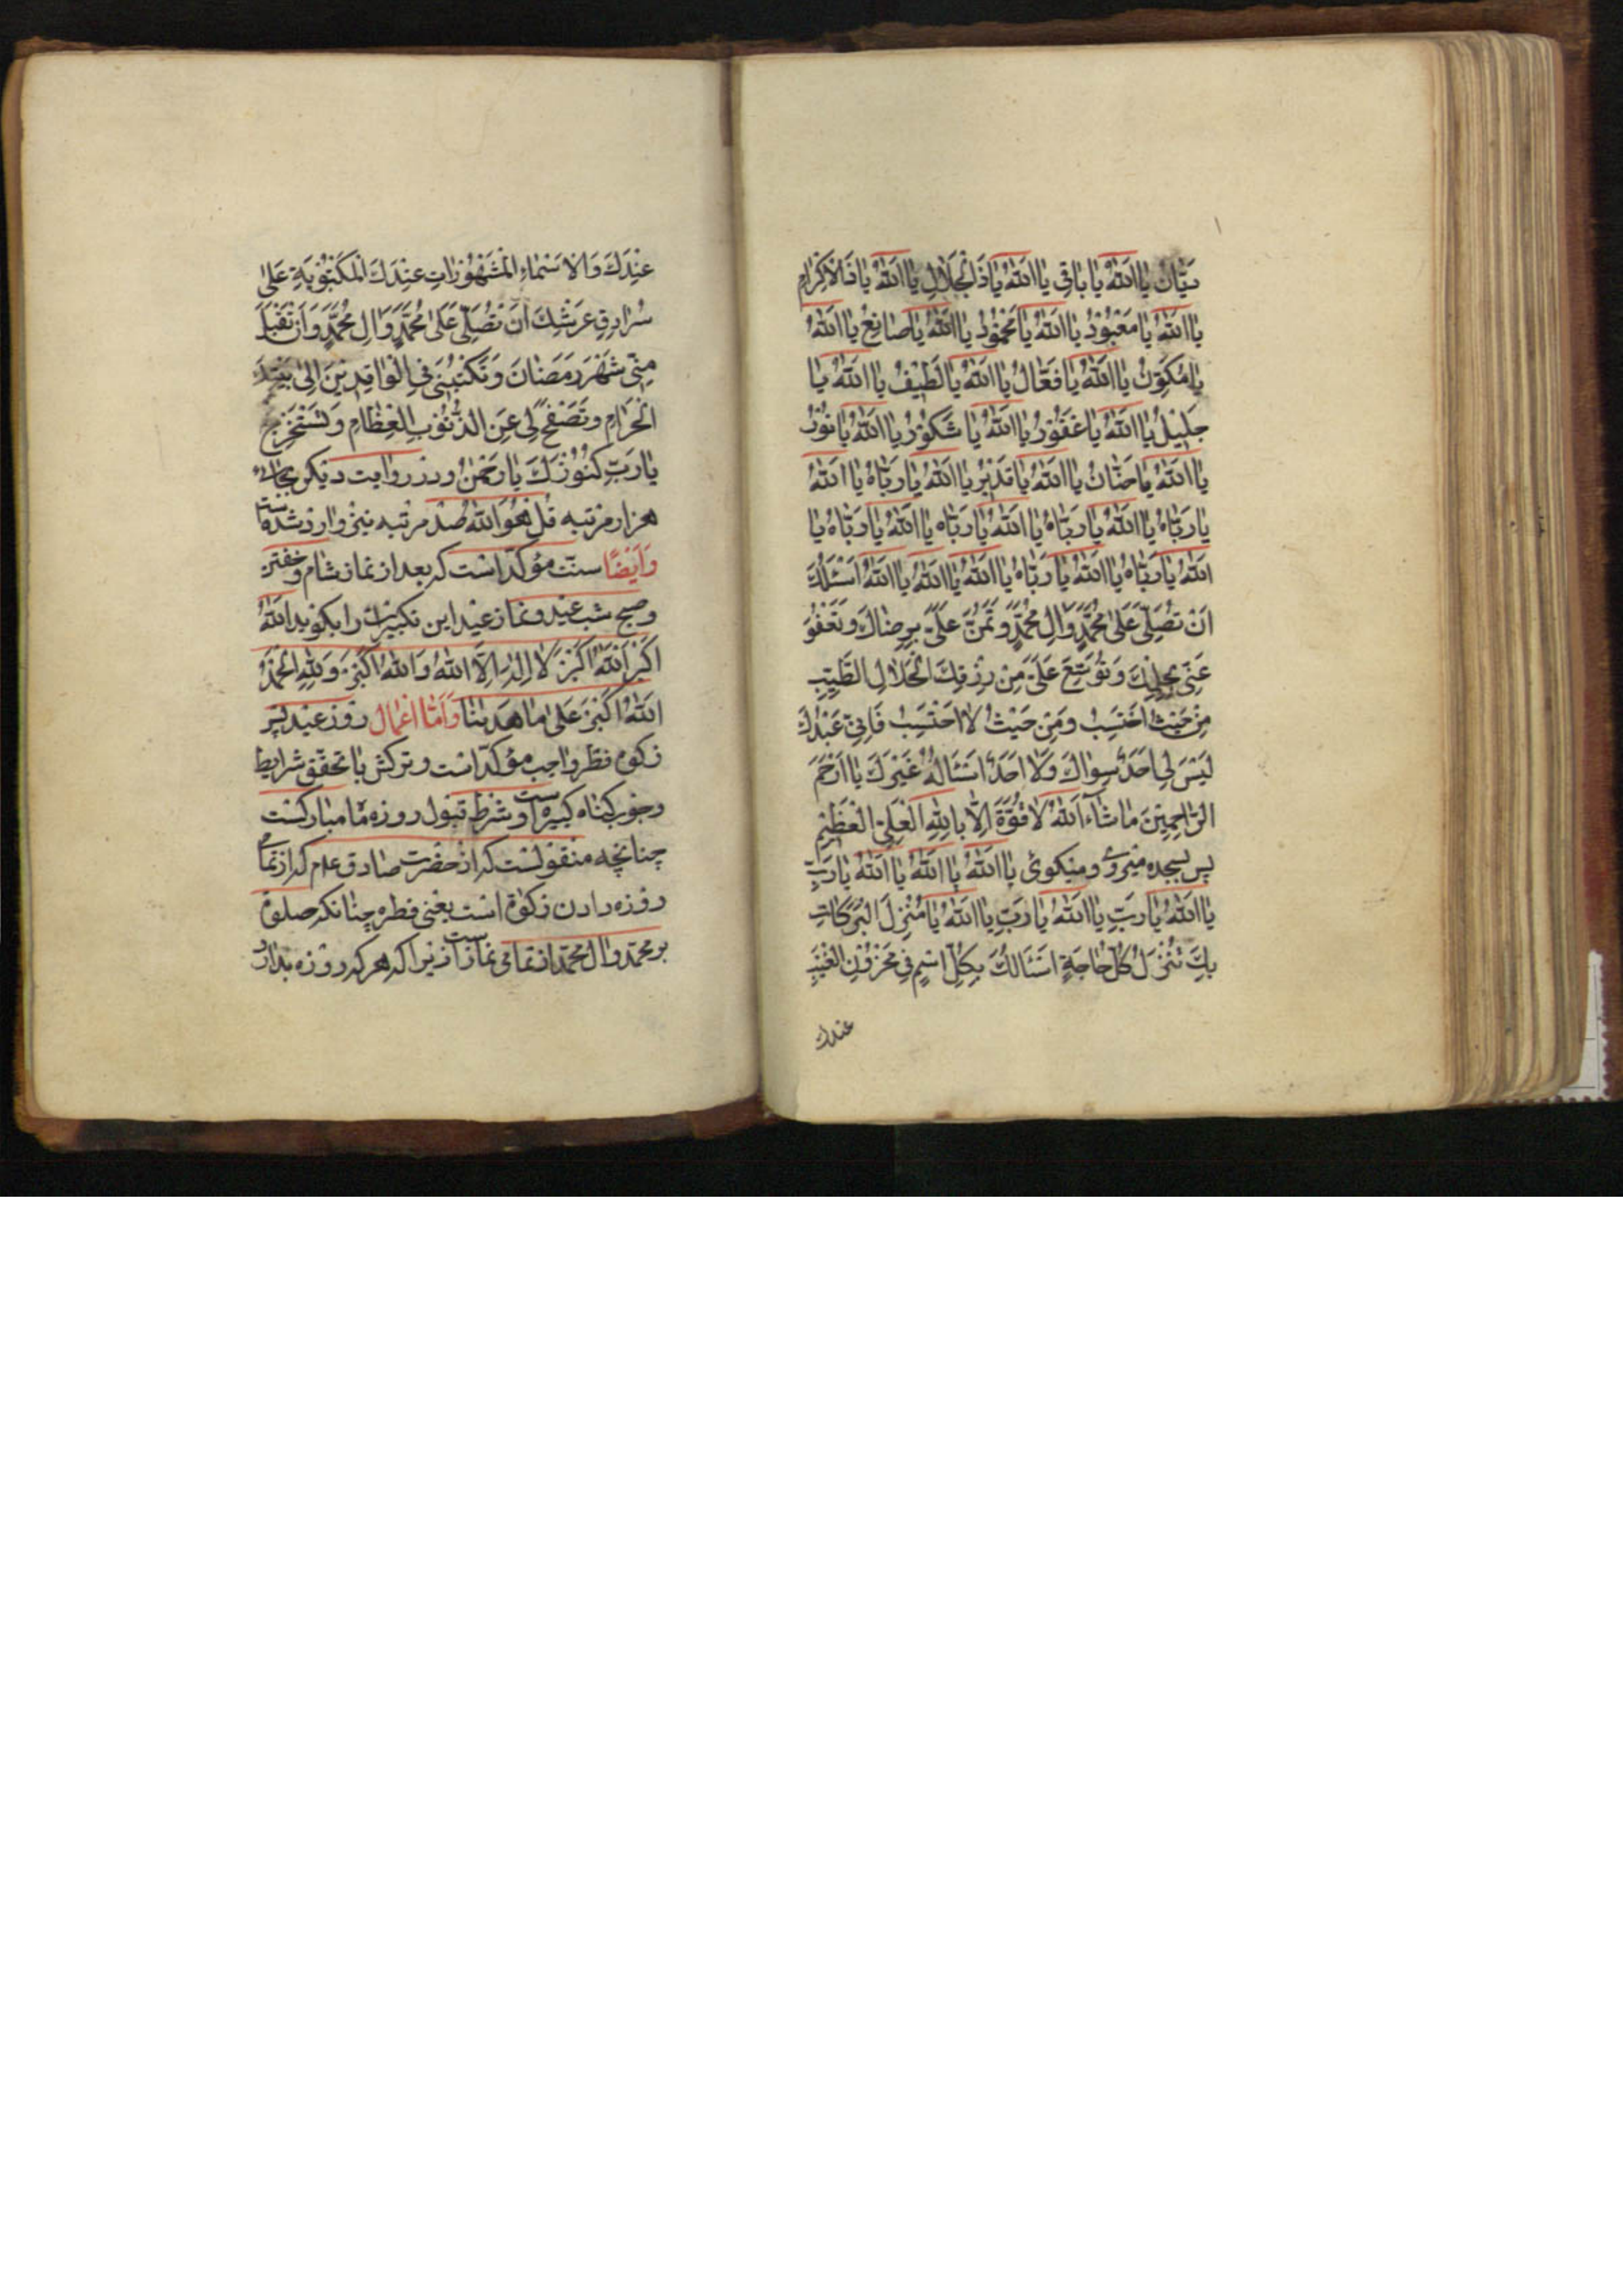 دَيَّانُ يَا اَللّٰهُ يَا بَاقِي يَا اَللّٰهُ يَا ذَالْجَلَالِ يَا اَللّٰهُ يَا ذَالْاِكْرَامِ
يَا اَللّٰهُ يَا مَعْبُوْدُ يَا اَللّٰهُ يَا مَحْمُوْدُ يَا اَللّٰهُ يَا صَانِعُ يَا اَللّٰهُ
يَا مُكَوِّنُ يَا اَللّٰهُ يَا فَعَّالُ يَا اَللّٰهُ يَا لَطِيْفُ يَا اَللّٰهُ يَا
جَلِيْلُ يَا اَللّٰهُ يَا غَفُوْرُ يَا اَللّٰهُ يَا شَكُوْرُ يَا اَللّٰهُ يَا نُوْرُ
يَا اَللّٰهُ يَا حَنَّانُ يَا اَللّٰهُ يَا قَدِيْرُ يَا اَللّٰهُ يَا رَبَّاهُ يَا اَللّٰهُ
يَا رَبَّاهُ يَا اَللّٰهُ يَا رَبَّاهُ يَا اَللّٰهُ يَا رَبَّاهُ يَا اَللّٰهُ يَا رَبَّاهُ يَا
اَللّٰهُ يَا رَبَّاهُ يَا اَللّٰهُ يَا رَبَّاهُ يَا اَللّٰهُ يَا اَللّٰهُ يَا اَللّٰهُ اَسْئَلُكَ
اَنْ تُصَلِّيَ عَلٰى مُحَمَّدٍ وَاٰلِ مُحَمَّدٍ وَ تَمُنَّ عَلَيَّ بِرِضَاكَ وَ تَعْفُوَ
عَنِّي بِحِلْمِكَ وَ تُوَسِّعَ عَلَيَّ مِنْ رِزْقِكَ الْحَلَالِ الطَّيِّبِ
مِنْ حَيْثُ اَحْتَسِبُ وَ مِنْ حَيْثُ لَا اَحْتَسِبُ فَاِنِّي عَبْدُكَ
لَيْسَ لِي اَحَدٌ سِوَاكَ وَلَا اَحَدٌ اَسْئَالُهُ غَيْرَكَ يَا اَرْحَمَ
الرَّاحِمِيْنَ مَا شَآءَ اَللّٰهُ لَا قُوَّةَ اِلَّا بِاللّٰهِ الْعَلِيِّ الْعَظِيْمِ
پس بسجده ميروى و ميكوئى يَا اَللّٰهُ يَا اَللّٰهُ يَا اَللّٰهُ يَا رَبِّ
يَا اَللّٰهُ يَا رَبِّ يَا اَللّٰهُ يَا رَبِّ يَا اَللّٰهُ يَا مُنْزِلَ الْبَرَكَاتِ
بِكَ تُنْزَلُ كُلُّ حَاجَةٍ اَسْئَالُكَ بِكُلِّ اسْمٍ فِي مَخْزُوْنِ الْغَيْبِ
عندك
عِنْدَكَ وَالْاَسْمَاءِ الْمَشْهُوْرَاتِ عِنْدَكَ الْمَكْتُوْبَةِ عَلٰى
سُرَادِقِ عَرْشِكَ اَنْ تُصَلِّيَ عَلٰى مُحَمَّدٍ وَاٰلِ مُحَمَّدٍ وَ اَنْ تَقْبَلَ
مِنِّي شَهْرَ رَمَضَانَ وَ تَكْتُبَنِي فِي الْوَافِدِيْنَ اِلٰى بَيْتِكَ
الْحَرَامِ وَ تَصْفَحَ لِي عَنِ الذُّنُوْبِ الْعِظَامِ وَ تَسْتَخْرِجَ
يَا رَبِّ كُنُوْزَكَ يَا رَحْمٰنُ ودر روايت ديكر بجاى
هزار مرتبه قُلْ هُوَ اللّٰهُ صد مرتبه نيز وارد شده است
وَاَيْضًا سنّت مؤكّد است كه بعد از نماز شام و خفتن
وصبح شب عيد و نماز عيد اين تكبيرات را بكويد اَللّٰهُ
اَكْبَرُ اَللّٰهُ اَكْبَرُ لَا اِلٰهَ اِلَّا اللّٰهُ وَاللّٰهُ اَكْبَرُ وَ لِلّٰهِ الْحَمْدُ
اَللّٰهُ اَكْبَرُ عَلٰى مَا هَدٰينَا وَاَمَّا اَعْمَال روز عيد پس
زكوة فطر واجب مؤكّد است و تركش با تحقّق شرايط
وجوب كناه كبيره است و شرط قبول روزه ماه مباركست
چنانچه منقولست كه از حضرت صادق ع م كه از تمامى
روزه دادن زكوة است يعنى فطره چنانكه صلوة
بر محمّد و ال محمّد از تمامى نماز است زيرا كه هر كه روزه بدارد